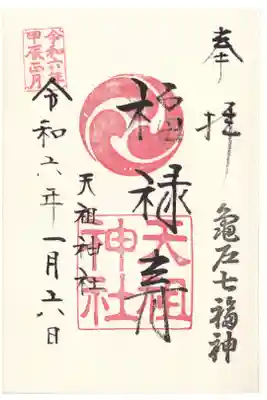 奉拝
亀戸七福神
福禄寿
天祖神社
天祖
神社
令和六年一月六日
令和六年
甲辰正月